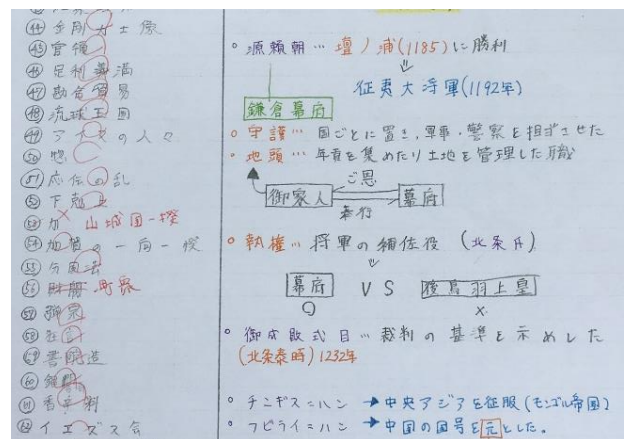 ㊹ 金剛力士像
㊺ 管領
㊻ 足利義満
㊼ 勘合貿易
㊽ 琉球王国
㊾ アイヌの人々
㊿ 惣
51 応仁の乱
52 下剋上
53 山城国一揆
54 加賀の一向一揆
55 分国法
56 町衆
60 鉄砲
61 香辛料
62 イエズス会
。源頼朝… 壇ノ浦(1185)に勝利
征夷大将軍(1192年)
鎌倉幕府
。守護… 国ごとに置き、軍事・警察を担当させた
。地頭… 年貢を集めたり土地を管理した職
ご恩
御家人 幕府
奉行
。執権… 将軍の補佐役 (北条氏)
幕府 VS 後鳥羽上皇
○ ×
。御成敗式目… 裁判の基準を示めした
(北条泰時) 1232年
。チンギス=ハン → 中央アジアを征服(モンゴル帝国)
。フビライ=ハン → 中国の国号を元とした。